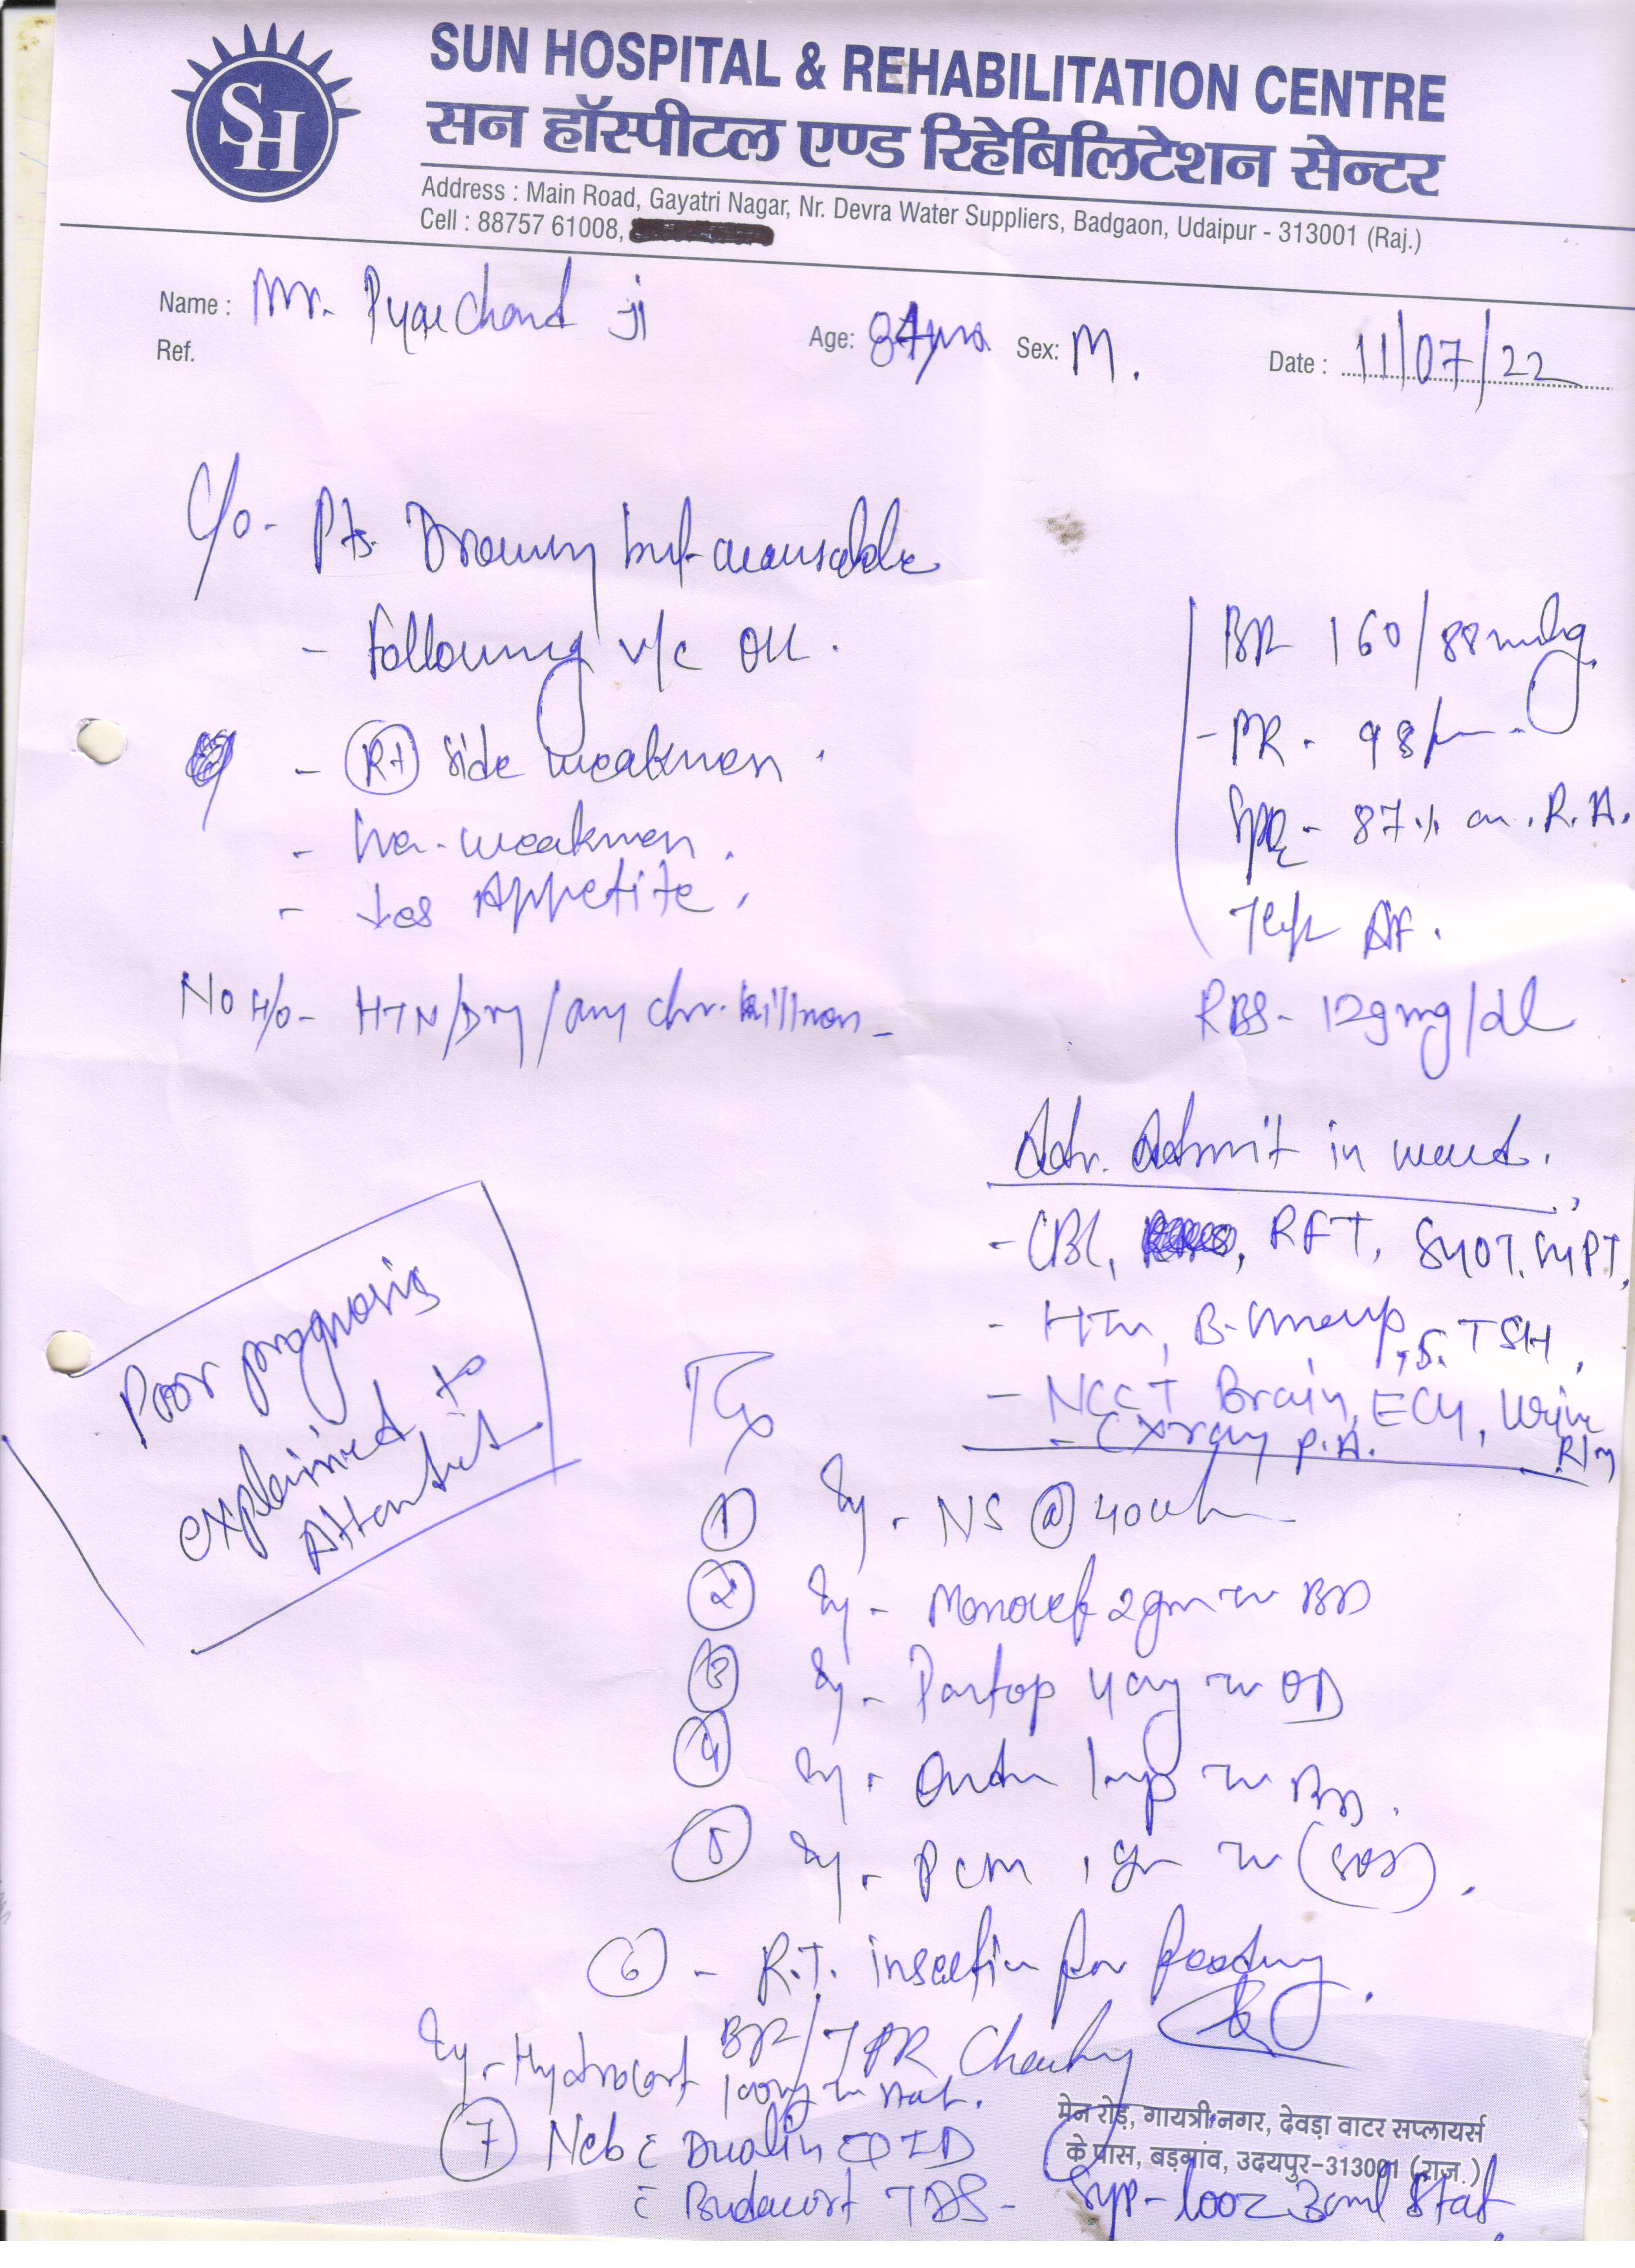 SH
SUN HOSPITAL & REHABILITATION CENTRE
सन हॉस्पीटल एण्ड रिहेबिलिटेशन सेन्टर
Address : Main Road, Gayatri Nagar, Nr. Devra Water Suppliers, Badgaon, Udaipur - 313001 (Raj.)
Cell : 88757 61008,
Name : Mr. Pyarchand ji Age: 84yrs Sex: M. Date : 11/07/22
Ref.
C/o - Pts. Drowsy but arousable
- Following v/c OK.
- (Rt) side weakness.
- weakness.
- ↓es Appetite.
No H/o - HTN/DM/any chr. illness -
BP 160/88mmhg
- PR - 98/m -
SPO2 - 87% on R.A.
Temp AF.
RBS - 129mg/dl
Adv. Admit in ward.
- CBC, RFT, SGOT, SGPT,
- B-Group, S. TSH,
- NCCT Brain, ECG, Urine R/m
- CXray P.A.
Poor prognosis
explained to
Attendent
Rx
1 Inj - NS @ 40ml/h
2 Inj - Monocef 2gm iv BD
3 Inj - Pantop 40mg iv OD
4 Inj - 1amp iv BD.
5 Inj - PCM 1gm iv (SOS).
6 - R.T. insertion for feeding.
BP/TPR Charting
Inj - Hydrocort 100mg iv stat.
7 Neb c Duolin QID
c Budecort TDS -
Syp - looz 30ml Stat
मेन रोड़, गायत्री नगर, देवड़ा वाटर सप्लायर्स
के पास, बड़गांव, उदयपुर-313001 (राज.)